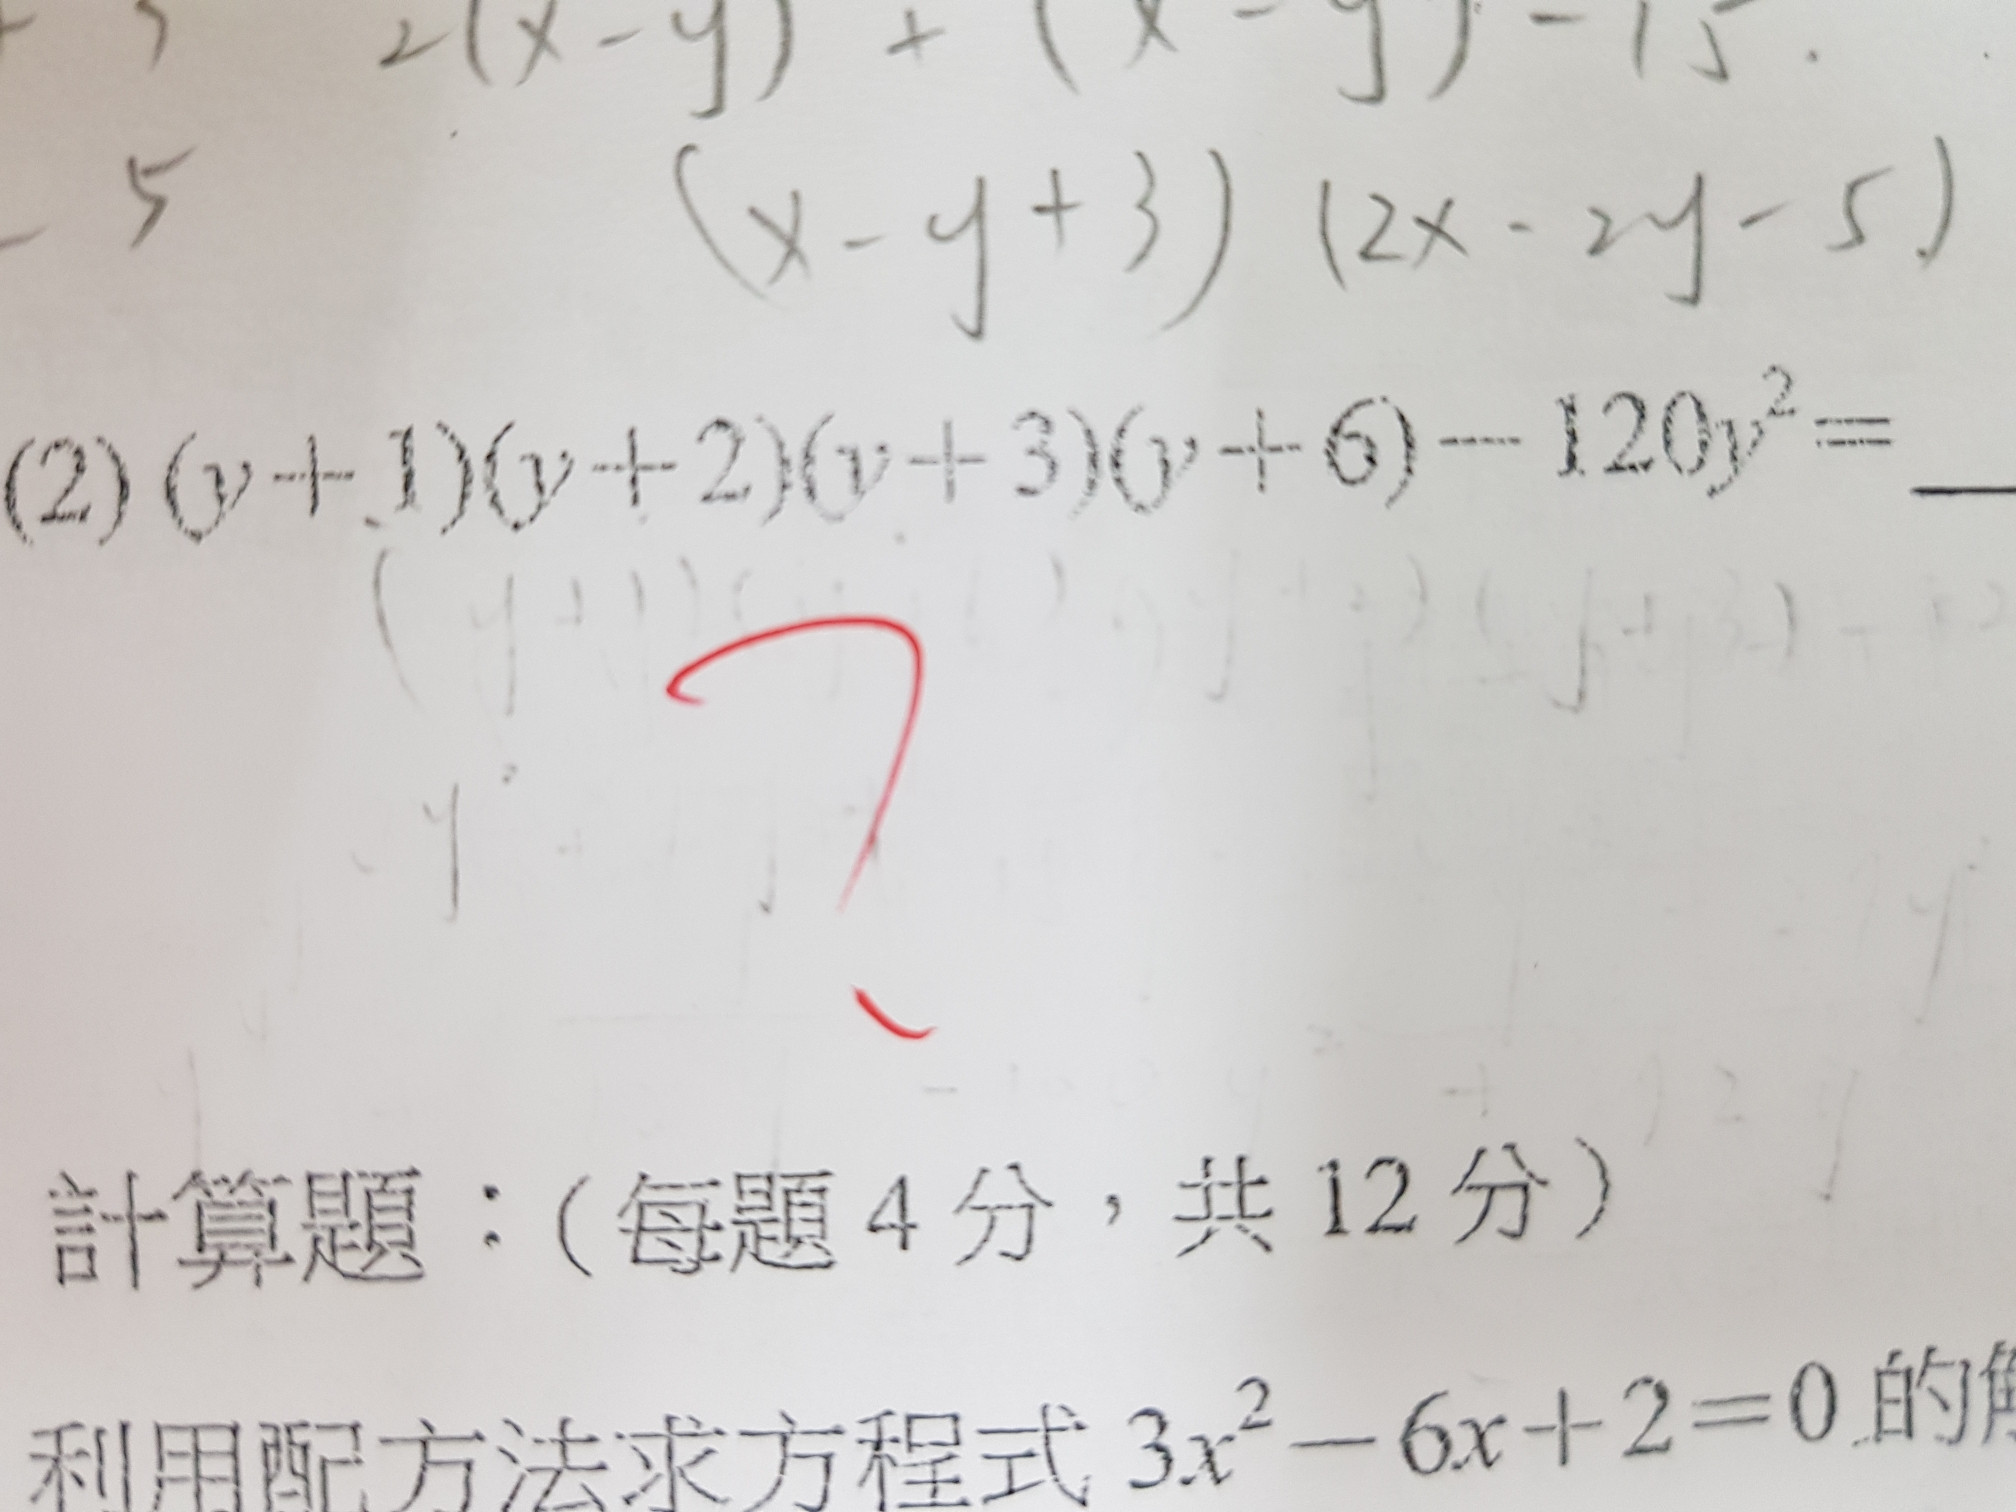 2(x-y) + (x-y)-15.
5 (x-y+3) (2x-2y-5)
(2) (y+1)(y+2)(y+3)(y+6)-120y²=
(y+1)( y+2)(y+3)-
y²
計算題：(每題4分，共12分)
利用配方法求方程式 3x²-6x+2=0 的